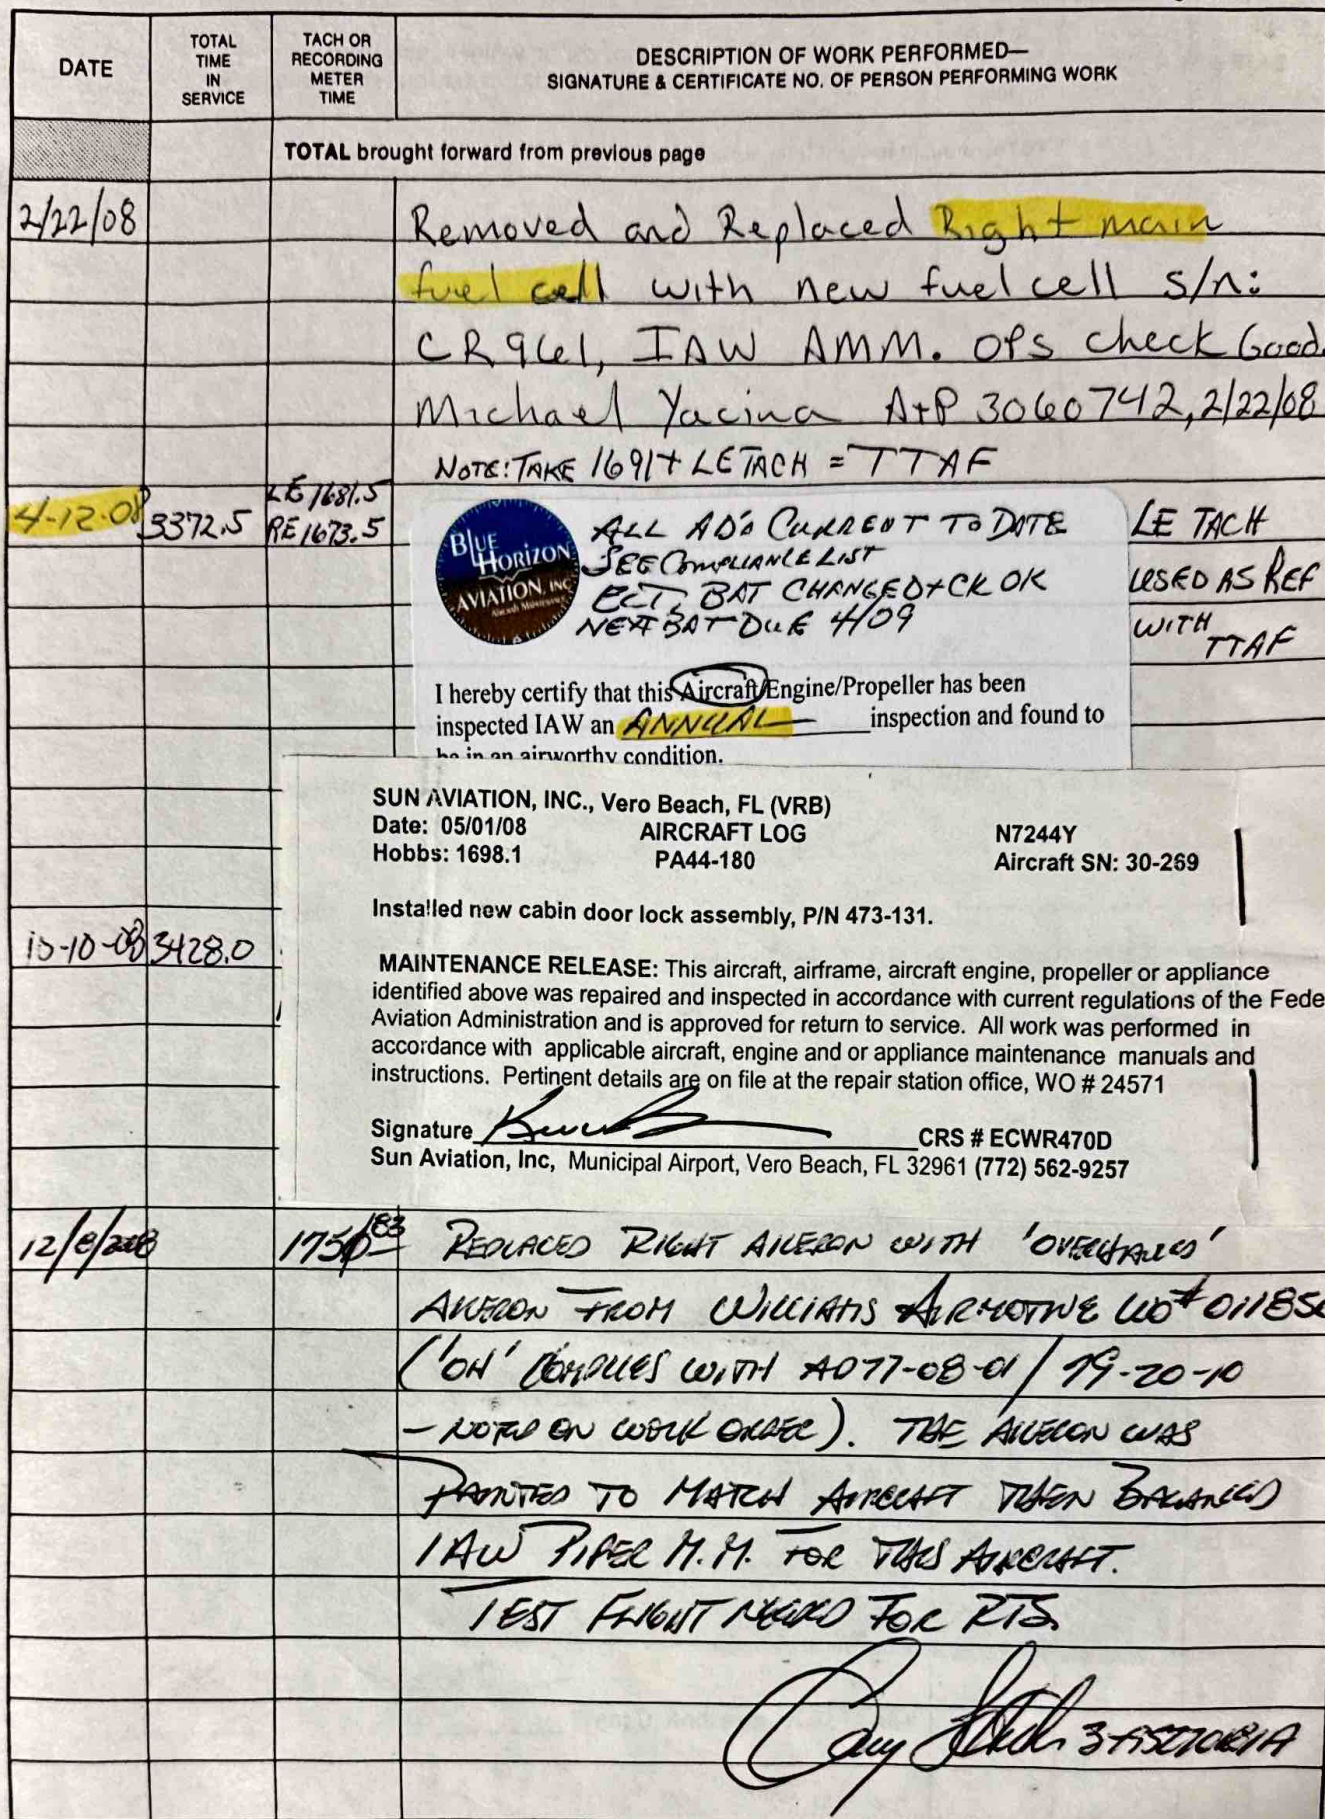 DATE
TOTAL TIME IN SERVICE
TACH OR RECORDING METER TIME
DESCRIPTION OF WORK PERFORMED—
SIGNATURE & CERTIFICATE NO. OF PERSON PERFORMING WORK
TOTAL brought forward from previous page
2/22/08 Removed and Replaced Right main
fuel cell with new fuel cell s/n:
CR9661, IAW AMM. OPs check Good.
Michael Yacina A+P 3060742, 2/22/08
NOTE: TAKE 1691 + LE TACH = TTAF
4-12-08 3372.5 LE 1681.5
RE 1673.5
BLUE HORIZON
AVIATION, INC
Aircraft Maintenance
ALL AD's CURRENT TO DATE
SEE COMPLIANCE LIST
ELT, BAT CHANGED + CK OK
NEXT BAT DUE 4/09
LE TACH
USED AS REF
WITH
TTAF
I hereby certify that this Aircraft/Engine/Propeller has been
inspected IAW an ANNUAL inspection and found to
be in an airworthy condition.
SUN AVIATION, INC., Vero Beach, FL (VRB)
Date: 05/01/08 AIRCRAFT LOG N7244Y
Hobbs: 1698.1 PA44-180 Aircraft SN: 30-269
Installed new cabin door lock assembly, P/N 473-131.
10-10-08 3428.0
MAINTENANCE RELEASE: This aircraft, airframe, aircraft engine, propeller or appliance
identified above was repaired and inspected in accordance with current regulations of the Fede
Aviation Administration and is approved for return to service. All work was performed in
accordance with applicable aircraft, engine and or appliance maintenance manuals and
instructions. Pertinent details are on file at the repair station office, WO # 24571
Signature CRS # ECWR470D
Sun Aviation, Inc, Municipal Airport, Vero Beach, FL 32961 (772) 562-9257
12/8/2008 REPLACED RIGHT AILERON WITH 'OVERHAULED'
AILERON FROM WILLIAMS AIRMOTIVE WO# 011850
('OH' COMPLIES WITH AD 77-08-01 / 79-20-10
- NOTED ON WORK ORDER). THE AILERON WAS
PAINTED TO MATCH AIRCRAFT THEN BALANCED
IAW PIPER M.M. FOR THIS AIRCRAFT.
TEST FLIGHT NEEDED FOR RTS.